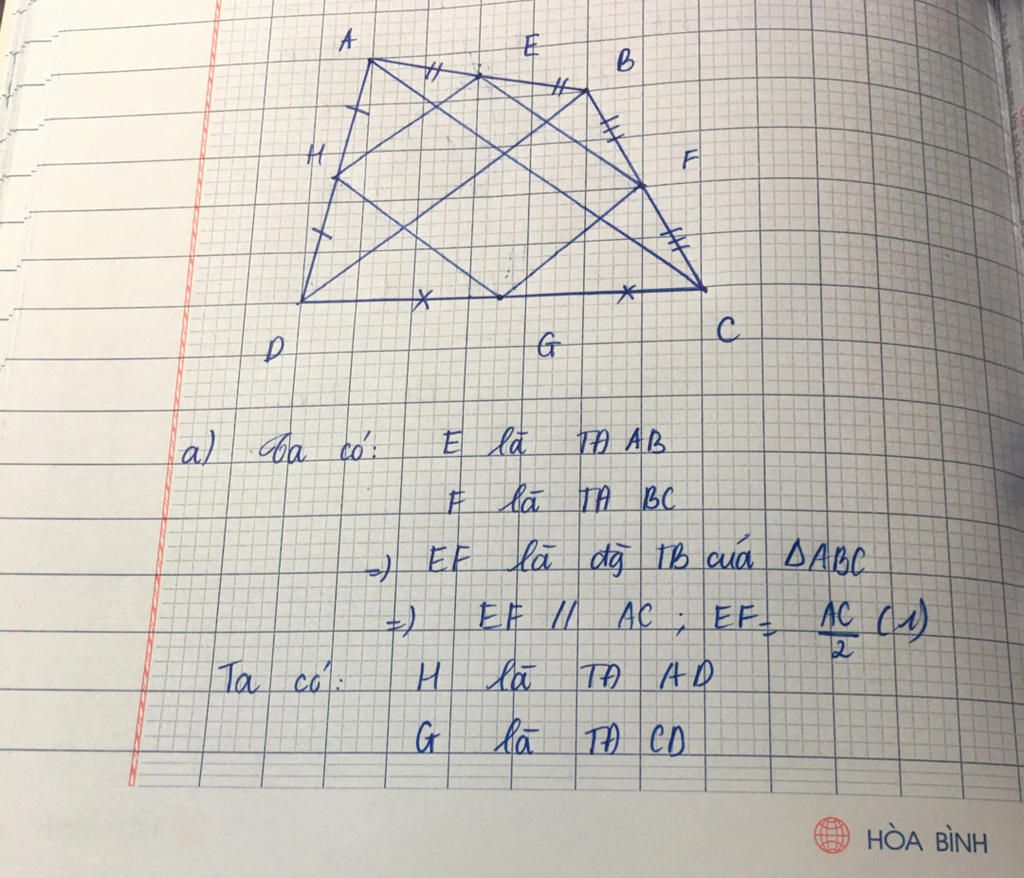 A
E
B
H
F
D
G
C
a) Ta có: E là TĐ AB
F là TĐ BC
=) EF là đg TB của ΔABC
=) EF // AC ; EF = AC/2 (1)
Ta có: H là TĐ AD
G là TĐ CD
HÒA BÌNH